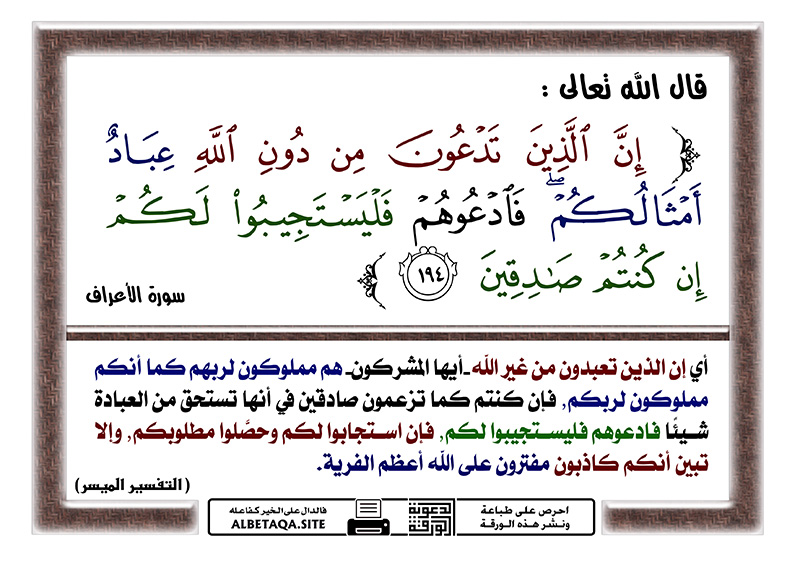 قال الله تعالى :
﴿ إِنَّ ٱلَّذِينَ تَدۡعُونَ مِن دُونِ ٱللَّهِ عِبَادٌ
أَمۡثَالُكُمۡۖ فَٱدۡعُوهُمۡ فَلۡيَسۡتَجِيبُواْ لَكُمۡ
إِن كُنتُمۡ صَٰدِقِينَ ١٩٤ ﴾
سورة الأعراف
أي إن الذين تعبدون من غير الله ـ أيها المشركون ـ هم مملوكون لربهم كما أنكم
مملوكون لربكم, فإن كنتم كما تزعمون صادقين في أنها تستحق من العبادة
شيئًا فادعوهم فليستجيبوا لكم, فإن استجابوا لكم وحصَّلوا مطلوبكم, وإلا
تبين أنكم كاذبون مفترون على الله أعظم الفرية.
(التفسير الميسر)
احرص على طباعة
ونشر هذه الورقة
دعوية الورقة
فالدال على الخير كفاعله
ALBETAQA.SITE